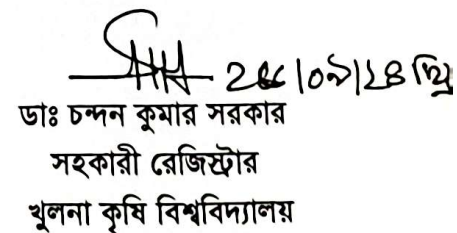 ডাঃ চন্দন কুমার সরকার
সহকারী রেজিস্ট্রার
খুলনা কৃষি বিশ্ববিদ্যালয়